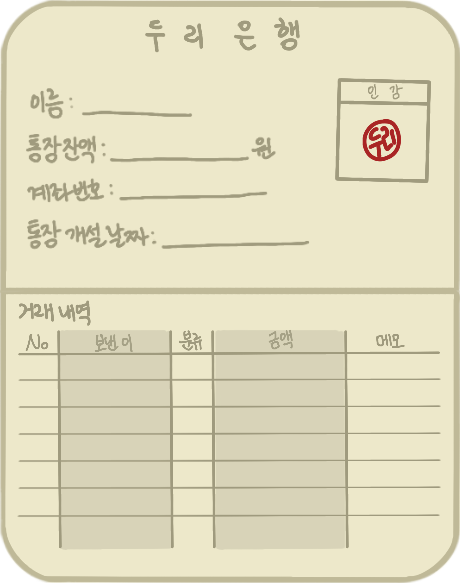 두리은행
인감
이름:
두리
통장잔액: 원
계좌번호:
통장 개설 날짜:
거래 내역
No 보낸이 분류 금액 메모